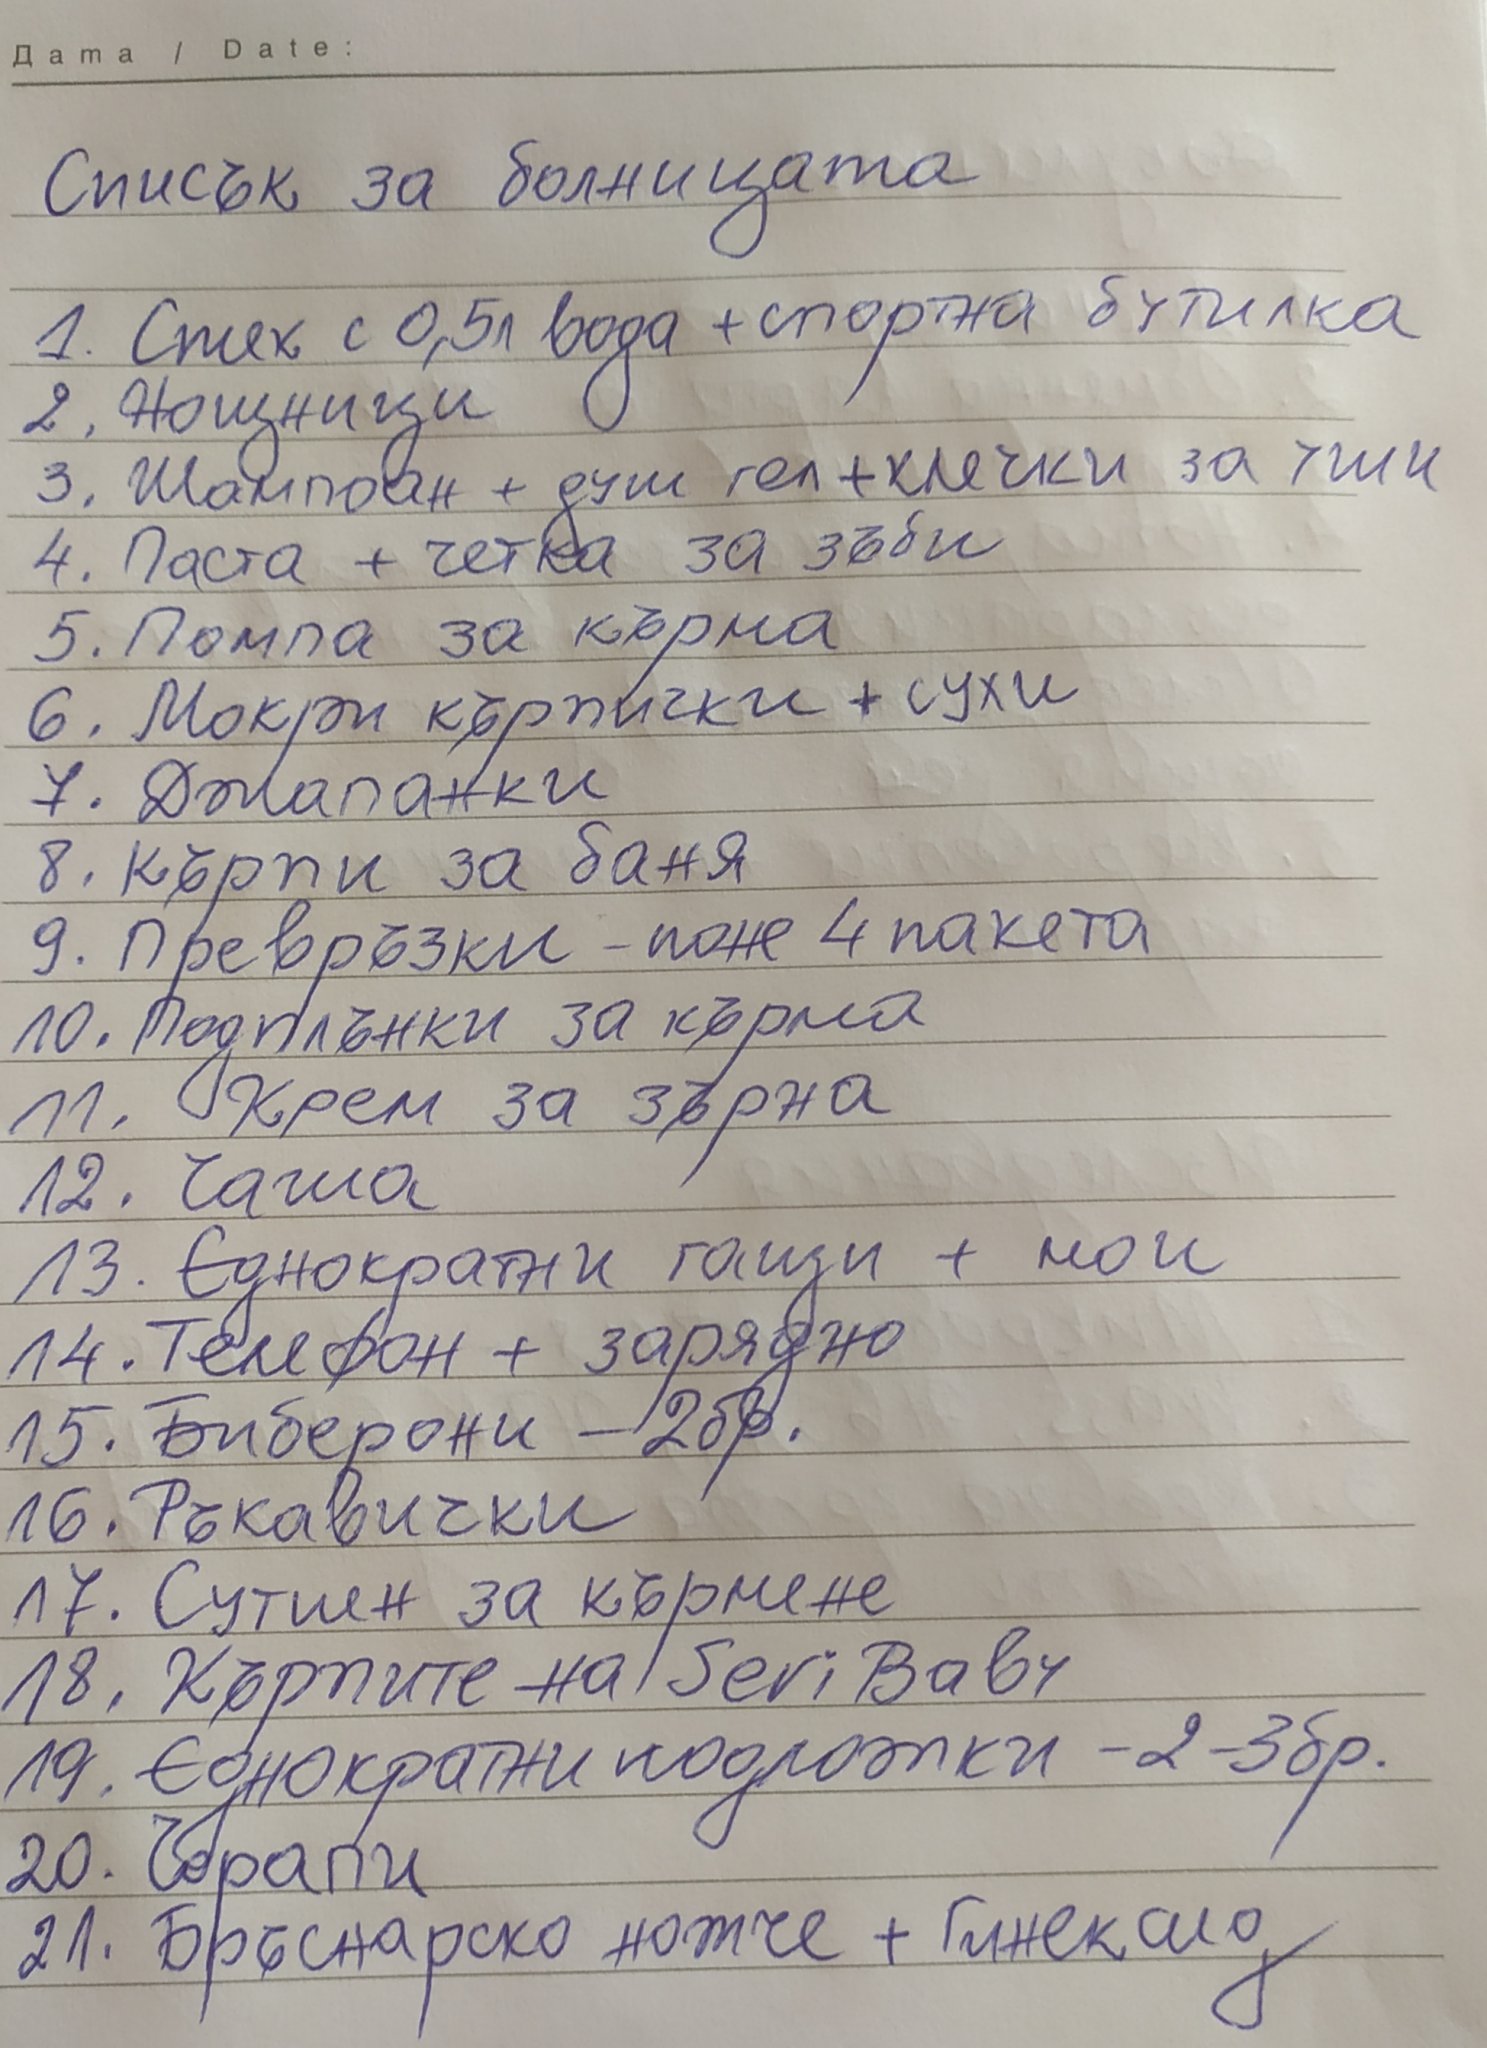 Дата / Date:
Списък за болницата
1. Стек с 0,5л вода + спортна бутилка
2. Нощници
3. Шампоан + душ гел + клечки за уши
4. Паста + четка за зъби
5. Помпа за кърма
6. Мокри кърпички + сухи
7. Джапанки
8. Кърпи за баня
9. Превръзки - поне 4 пакета
10. Подплънки за кърма
11. Крем за зърна
12. Чаша
13. Еднократни гащи + мои
14. Телефон + зарядно
15. Биберони - 2бр.
16. Ръкавички
17. Сутиен за кърмене
18. Кърпите на SeriBaby
19. Еднократни подложки - 2-3бр.
20. Чорапи
21. Бръснарско ножче +